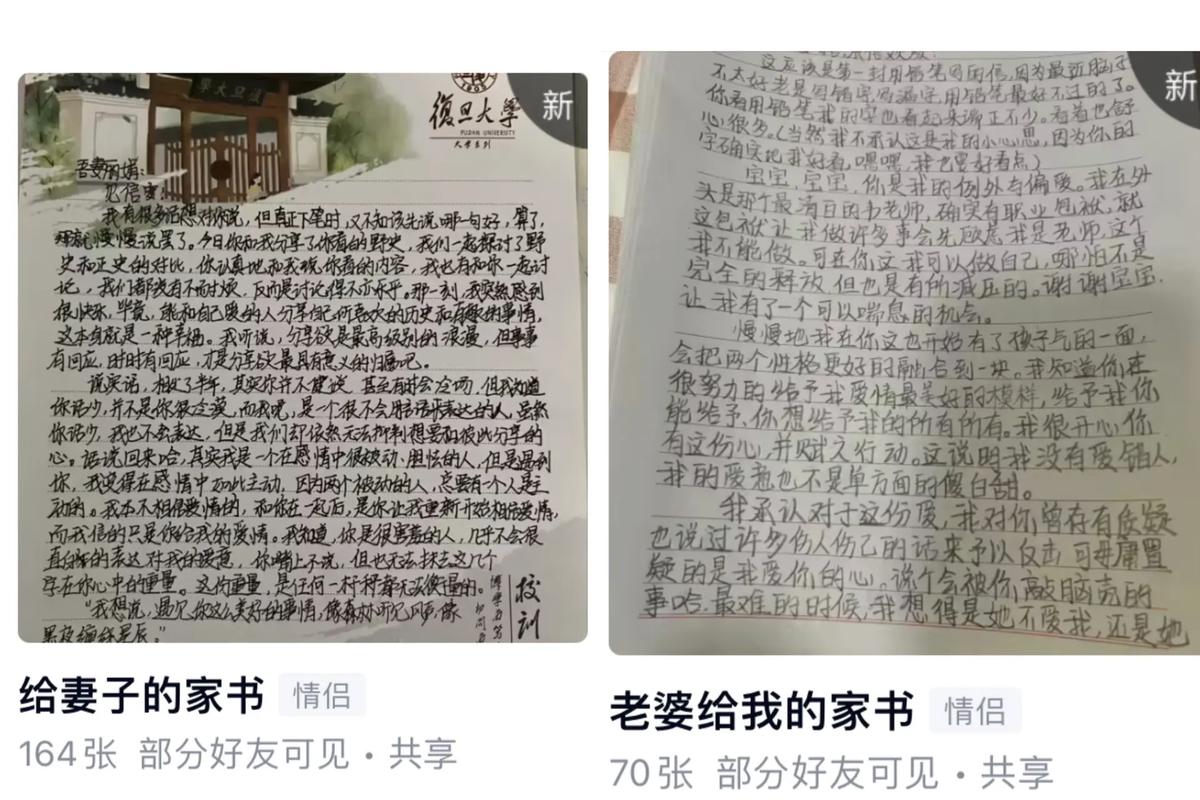 新
學大旦復
1905
復旦大學
FUDAN UNIVERSITY
大学系列
吾妻丽娟:
见信安。
我有很多话想对你说，但真正下笔时，又不知该先说哪一句好，算了，
那就慢慢说罢了。今日你和我分享了你看的野史，我们一起探讨了野
史和正史的对比，你认真地和我说你看的内容，我也有和你一起讨
论，我们都没有不耐烦，反而是讨论得不亦乐乎。那一刻，我突然感到
很快乐，毕竟，能和自己爱的人分享自己所喜欢的历史和有趣的事情，
这本身就是一种幸福。我听说，分享欲是最高级别的浪漫，但事事
有回应，时时有回应，才是分享欲最具有意义的归属吧。
说实话，相处了半年，其实你并不健谈，甚至有时会冷场，但我知道
你话少，并不是你很冷漠，而我呢，是一个很不会用话语表达的人，虽然
你话少，我也不会表达，但是我们却依然无法抑制想要和彼此分享的
心。话说回来哈，其实我是一个在感情中很被动、胆怯的人，但是遇到
你，我变得在感情中如此主动，因为两个被动的人，总要有一个人是主
动的。我本不相信爱情的，和你在一起后，是你让我重新开始相信爱情，
而我信的只是你给我的爱情。我知道，你是很害羞的人，几乎不会很
直白的表达对我的爱意，你嘴上不说，但也无法抹去这几个
字在你心中的重量。这份重量，是任何一杆秤都无法衡量的。
“我想说，遇见你这么美好的事情，像森林听见风声，像
黑夜缠绵星辰。”
校训
博学而笃
切问
给妻子的家书 情侣
164张 部分好友可见・共享
新
这应该是第一封用铅笔写的信，因为最近脑子
不太好老是写错字写漏字，用铅笔最好不过的了。
你看用铅笔我的字也看起来端正不少。看着也舒
心很多。(当然我不承认这是我的小心思，因为你的
字确实比我好看，嘿嘿，我也要好看点)
宝宝，宝宝，你是我的例外与偏爱。我在外
头是那个最清白的书老师，确实有职业包袱，就
这包袱让我做许多事会先顾虑我是老师，这个
我不能做。可在你这我可以做自己，哪怕不是
完全的释放，但也是有所减压的。谢谢宝宝，
让我有了一个可以喘息的机会。
慢慢地我在你这也开始有了孩子气的一面，
会把两个性格更好的融合到一块。我知道你在
很努力的给予我爱情最美好的模样，给予我你
能给予，你想给予我的所有所有。我很开心，你
有这份心，并赋之行动。这说明我没有爱错人，
我的爱意也不是单方面的傻白甜。
我承认对于这份爱，我对你曾存有质疑
也说过许多伤人伤己的话来予以反击，可毋庸置
疑的是我爱你的心。说个会被你敲脑壳的
事哈，最难的时候，我想得是她不爱我，还是她
老婆给我的家书 情侣
70张 部分好友可见・共享